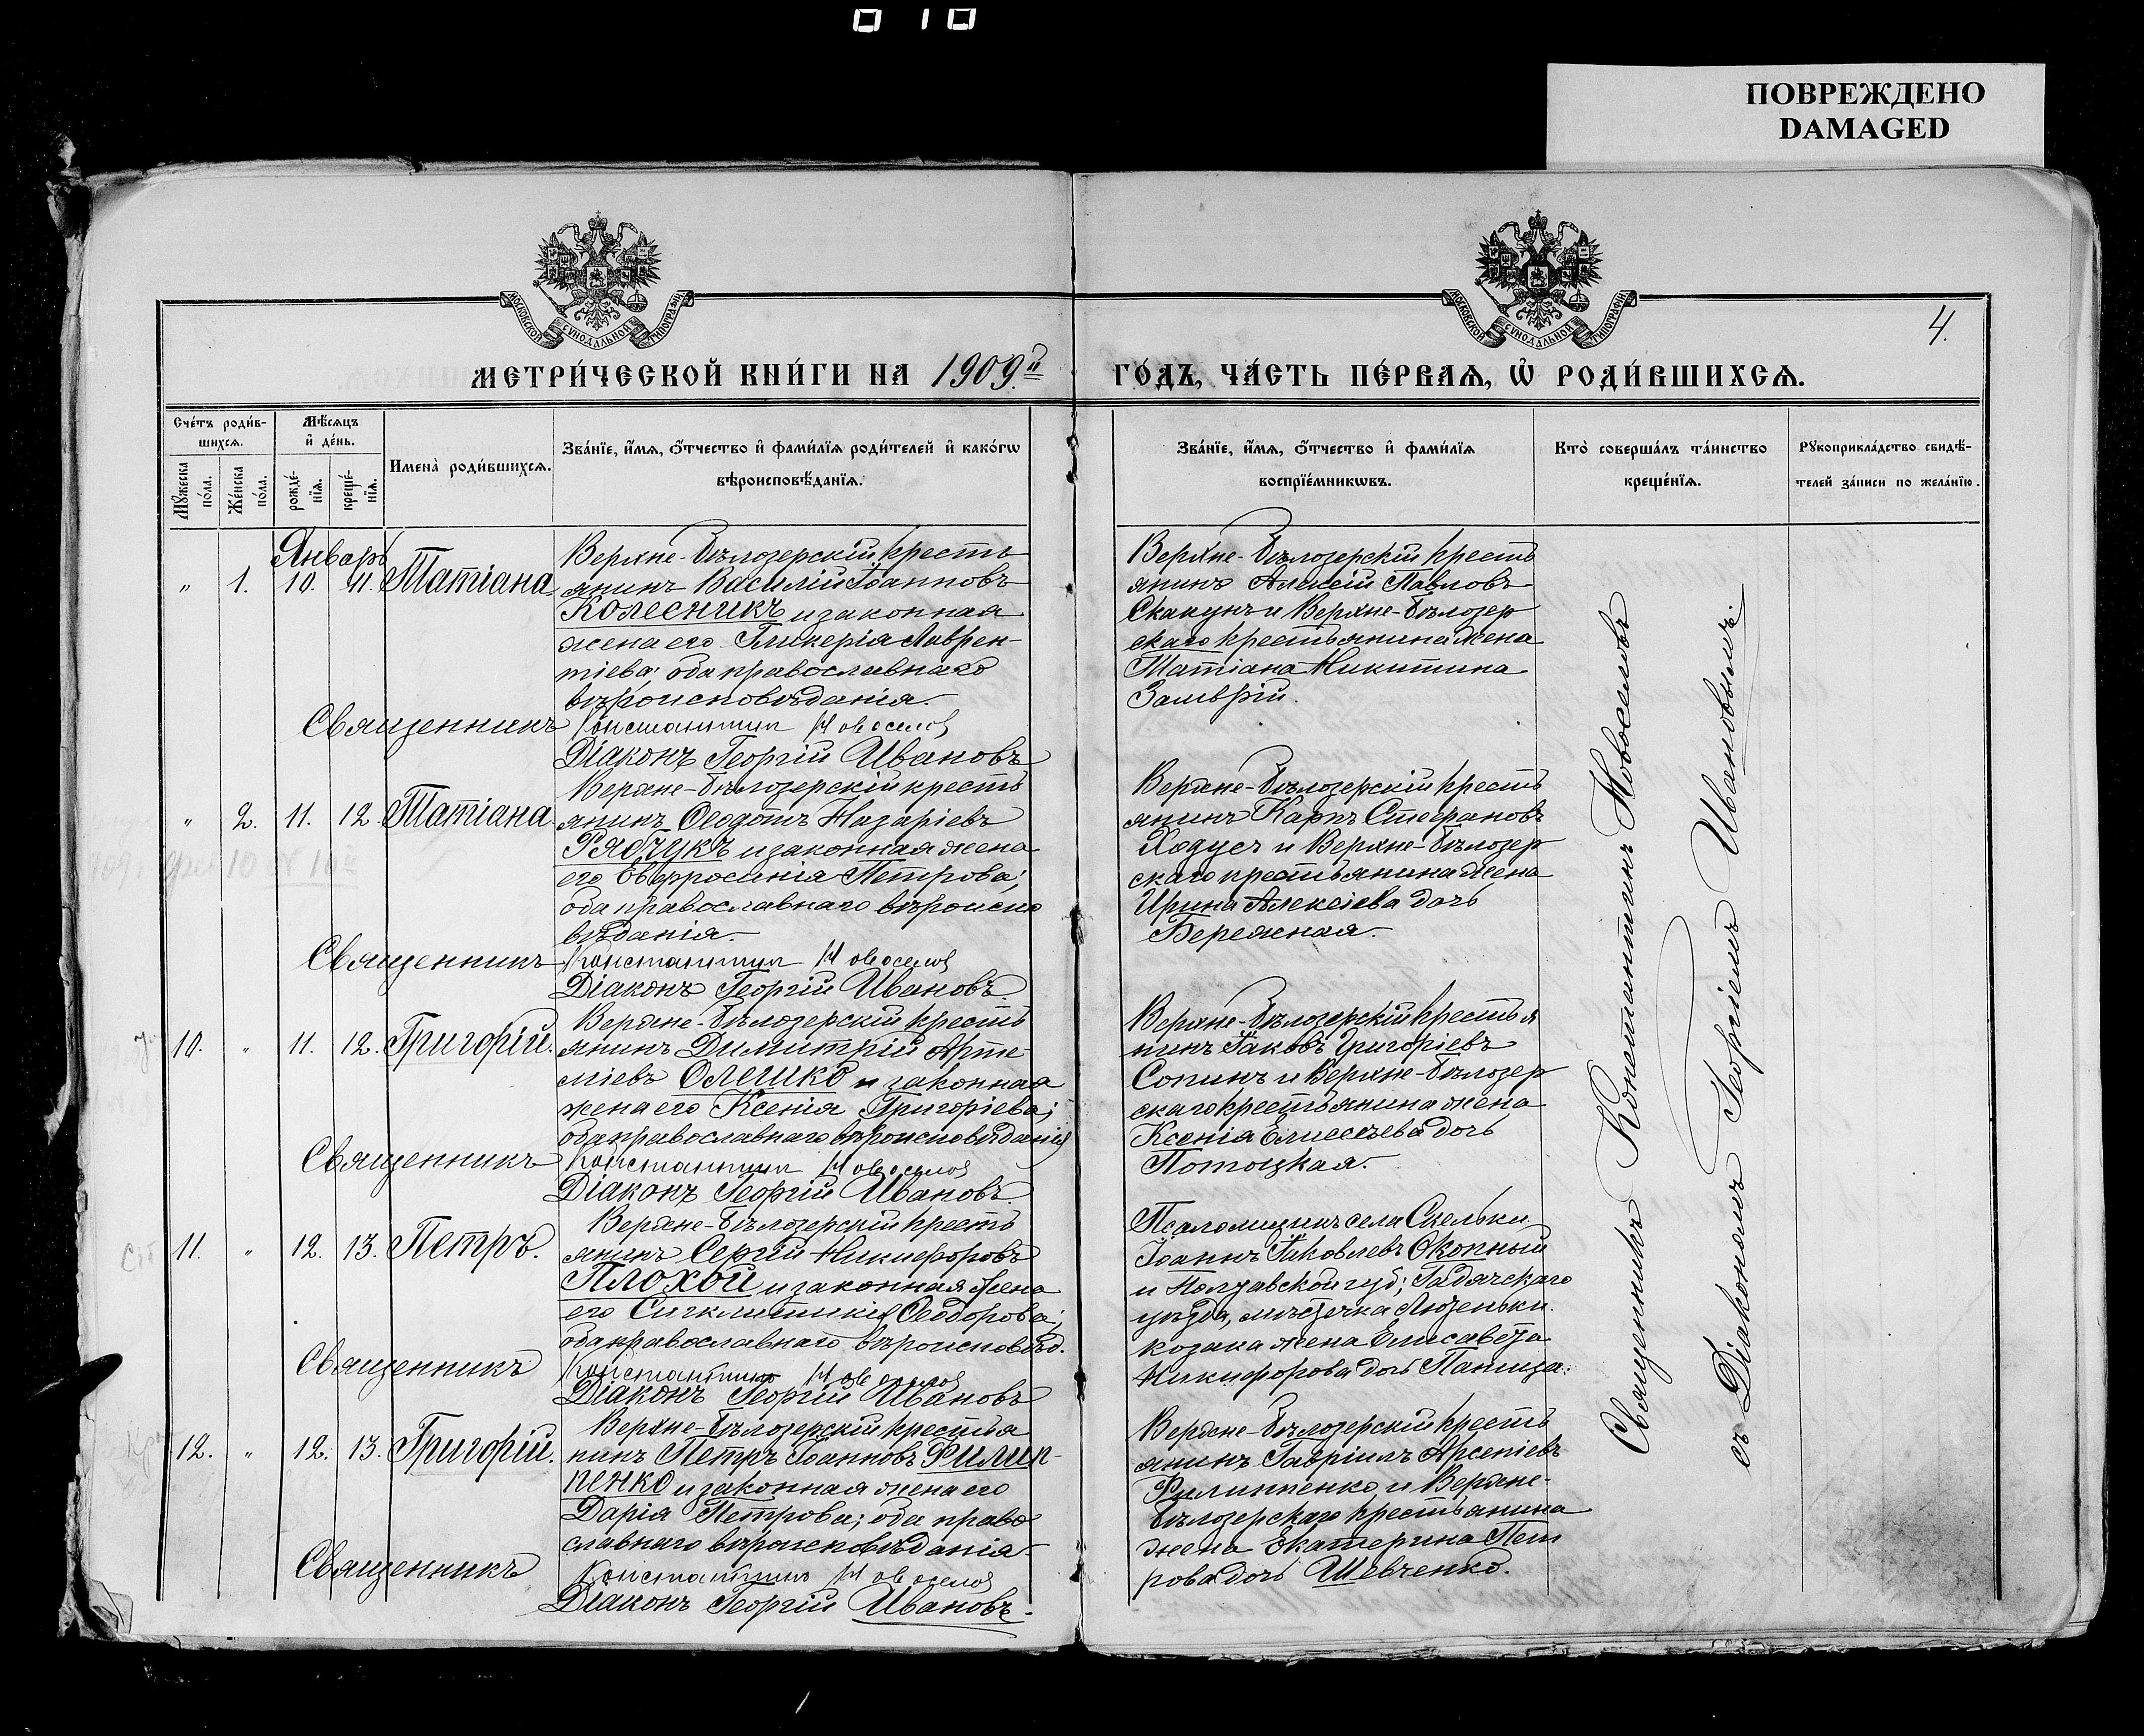 010
ПОВРЕЖДЕНО
DAMAGED
МОСКОВСКОЙ СѴНОДАЛЬНОЙ ТИПОГРАФІИ
МОСКОВСКОЙ СѴНОДАЛЬНОЙ ТИПОГРАФІИ
4.
МЕТРИ́ЧЕСКОЙ КНИ́ГИ НА 1909.й ГО́ДЪ, ЧА́СТЬ ПЕ́РВАѦ, Ѡ҆ РОДИ́ВШИХСѦ.
Сче́тъ роди́в-
шихсѧ.
Мꙋжеска по́ла.
Же́нска по́ла.
Мѣ́сѧцъ
и҆ де́нь.
рожде́-
нїѧ.
креще́-
нїѧ.
Имена̀ роди́вшихсѧ.
Зва́нїе, и҆́мѧ, ѻ҆́тчество и҆ фами́лїѧ роди́телей и҆ како́гѡ
вѣроисповѣ́данїѧ.
Зва́нїе, и҆́мѧ, ѻ҆́тчество и҆ фами́лїѧ
воспрїе́мникѡвъ.
Кто̀ соверша́лъ та́инство
креще́нїѧ.
Рꙋкоприкла́дство свидѣ́-
телей за́писи по жела́нїю.
Январь
" 1. 10. 11. Татіана
Верхне-Бѣлозерскій кресть
янинъ Василій Іоанновъ
Колесникъ и законная
жена его Гликерія Лаврен-
тіева; оба православнаго
вѣроисповѣданія.
Священникъ Константин Новоселов
Діаконъ Георгій Ивановъ
Верхне-Бѣлозерскій кресть
янинъ Алексій Павловъ
Скакунъ и Верхне-Бѣлозер
скаго крестьянина жена
Татіана Никитина
" 2. 11. 12. Татіана.
Верхне-Бѣлозерскій кресть
янинъ Ѳеодотъ Назаріевъ
Рябчукъ и законная жена
его Евфросинія Петрова;
оба православнаго вѣроиспо
вѣданія.
Священникъ Константин Новоселов
Діаконъ Георгій Ивановъ.
Верхне-Бѣлозерскій кресть
янинъ Карпъ Стефановъ
Ходусъ и Верхне-Бѣлозер
скаго крестьянина жена
Ирина Алексіева дочь
Бережная.
10. " 11. 12. Григорій.
Верхне-Бѣлозерскій кресть
янинъ Димитрій Арте-
міевъ Олешко и законная
жена его Ксенія Григоріева;
оба православнаго вѣроисповѣданія
Священникъ Константин Новоселов
Діаконъ Георгій Ивановъ.
Верхне-Бѣлозерскій крестья
нинъ Іаковъ Григоріевъ
Сопинъ и Верхне-Бѣлозер
скаго крестьянина жена
Ксенія Елисеева дочь
Потоцкая.
11. " 12. 13. Петръ.
Верхне-Бѣлозерскій кресть
янинъ Сергій Никифоровъ
Плохой и законная жена
его Сигклитикія Ѳеодорова;
оба православнаго вѣроисповѣд.
Священникъ Константин Новоселов
Діаконъ Георгій Ивановъ
Псаломщикъ села Скельки
Іоаннъ Іаковлевъ Окопный
и Полтавской губ; Гадячскаго
уѣзда, мѣстечка Лютеньки
козака жена Елисавета
Никифорова дочь
12. " 12. 13. Григорій.
Верхне-Бѣлозерскій крестья
нинъ Петръ Іоанновъ Филип-
пенко и законная жена его
Дарія Петрова; оба право
славнаго вѣроисповѣданія.
Священникъ Константин Новоселов
Діаконъ Георгій Ивановъ.
Верхне-Бѣлозерскій кресть
янинъ Гавріилъ Арсеніевъ
Филиппенко и Верхне-
Бѣлозерскаго крестьянина
жена Екатерина Пет
рова дочь Шевченко.
Священникъ Константинъ Новоселовъ
съ Діакономъ Георгіемъ Ивановымъ.